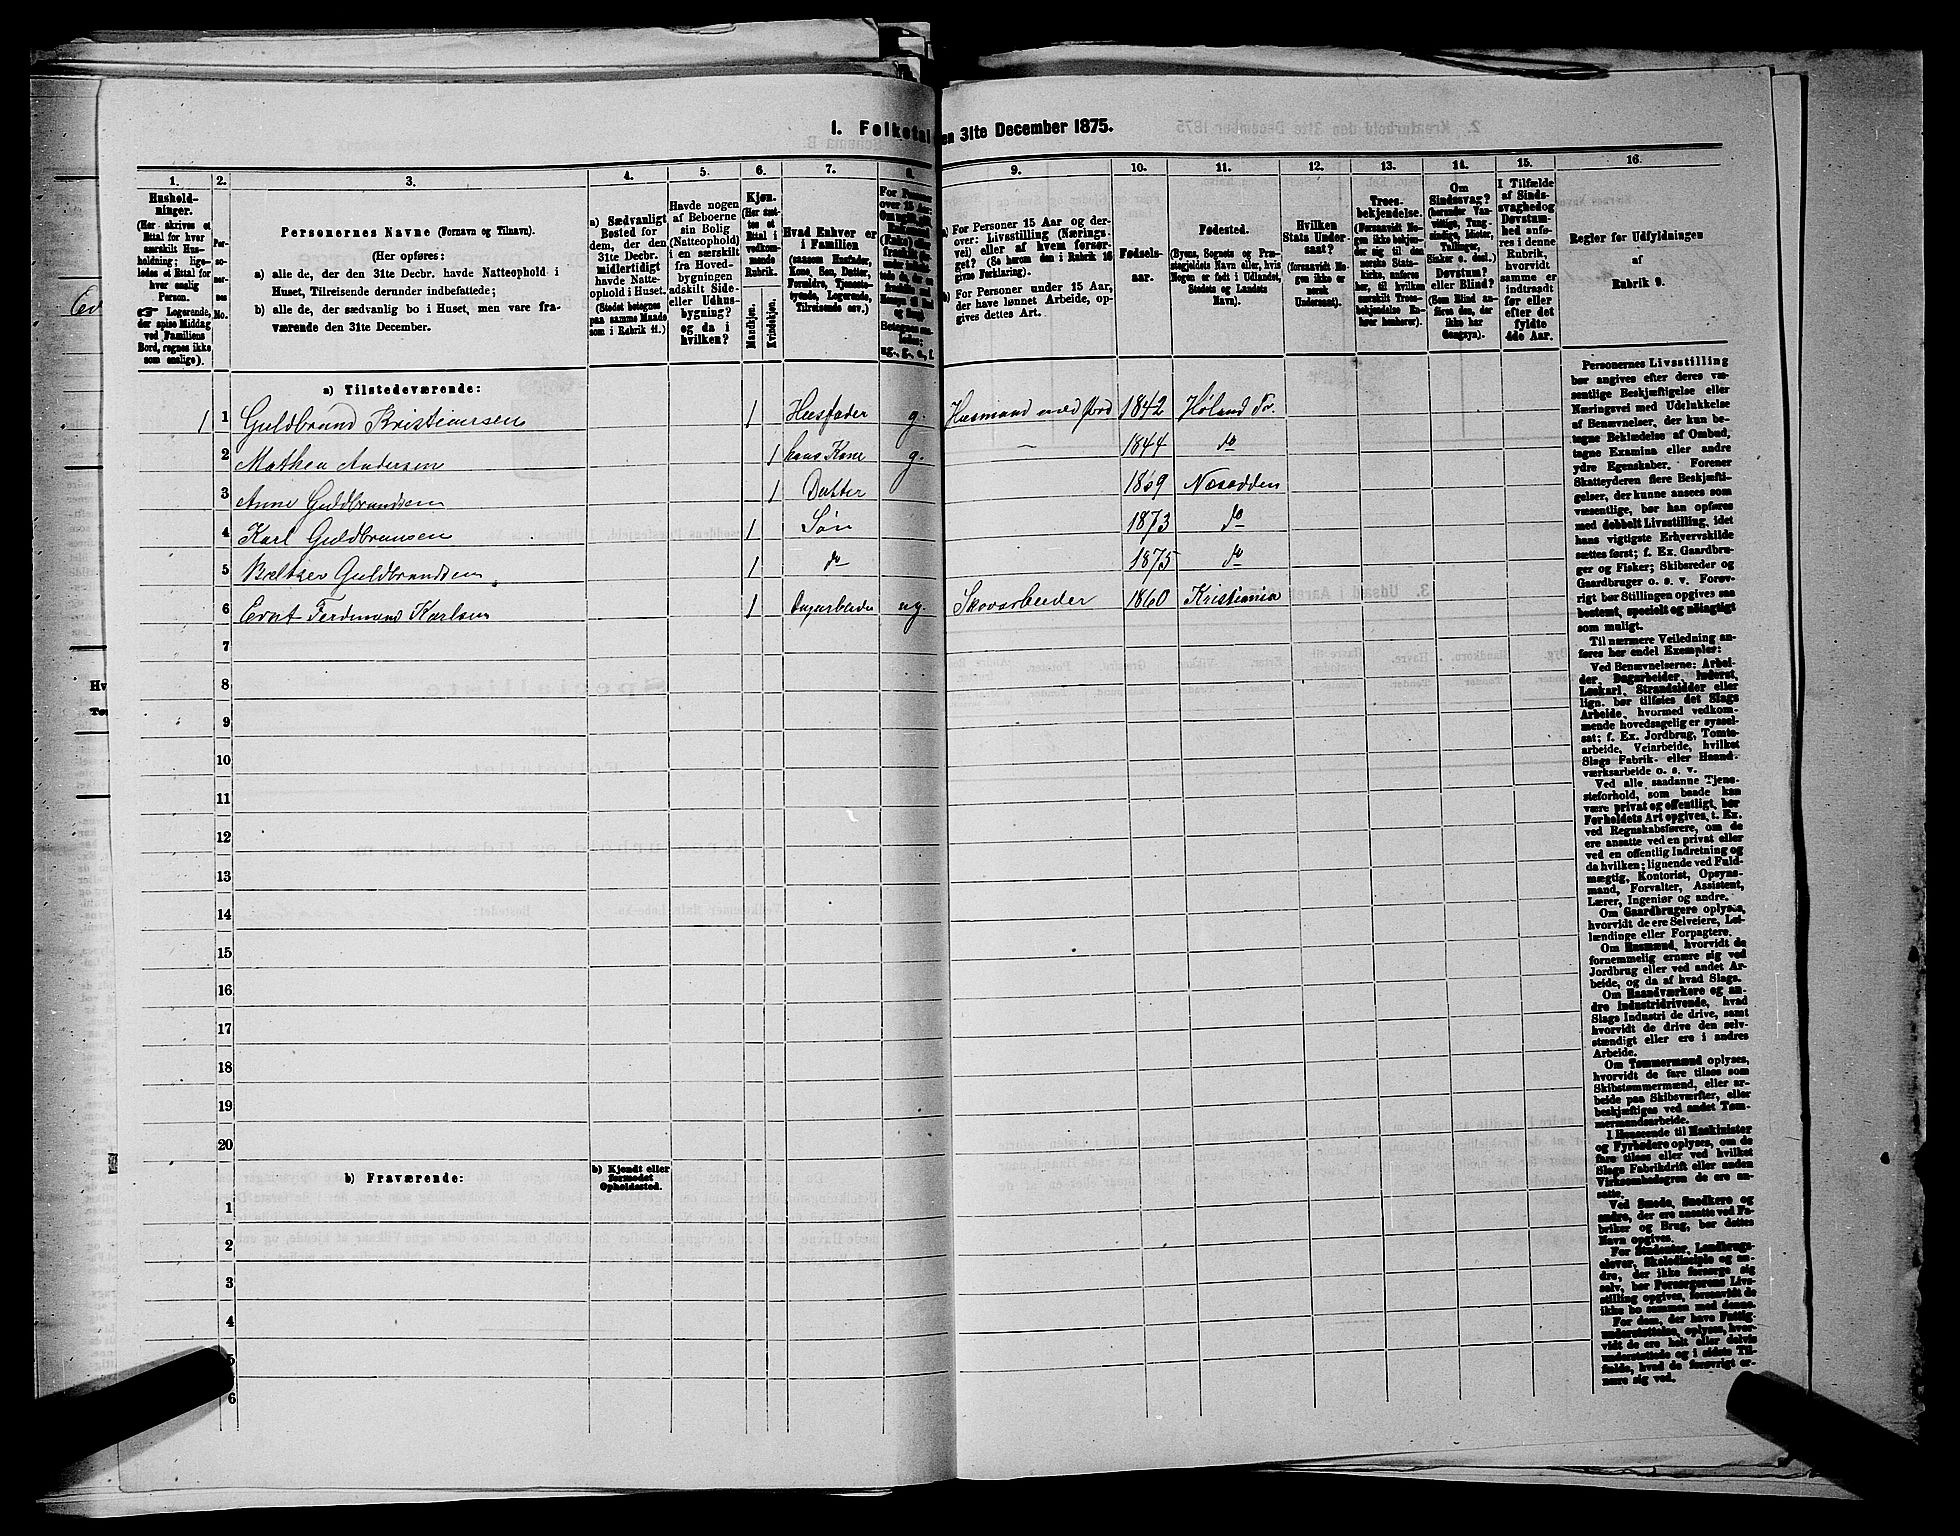 1. Folketal
en 31te December 1875.
1. 2. 3. 4. 5. 6. 7. 8. 9. 10. 11. 12. 13. 14. 15. 16.
Hushold-
ninger.
(Her skrives et
Ettal for hver
særskilt Hus-
holdning; lige-
ledes et Ettal for
hver enslig
Person.
☞ Logerende,
der spise Middag
ved Familiens
Bord, regnes ikke
som enslige).
Per-
so-
ner-
nes
No.
Personernes Navne (Fornavn og Tilnavn).
(Her opføres:
a) alle de, der den 31te Decbr. havde Natteophold i
Huset, Tilreisende derunder indbefattede;
b) alle de, der sædvanlig bo i Huset, men vare fra-
værende den 31te December.
a) Sædvanligt
Bosted for
dem, der den
31te Decbr.
midlertidigt
havde Natte-
ophold i Huset.
(Stedet betegnes
paa samme Maade
som i Rubrik 11.)
Havde nogen
af Beboerne
sin Bolig
(Natteophold)
i en særskilt
fra Hoved-
bygningen
adskilt Side-
eller Udhus-
bygning?
og da i
hvilken?
Kjøn.
(Her sæt-
tes et
Ettal i
vedkom-
mende
Rubrik.
Mandkjøn.
Kvindekjøn.
Hvad Enhver er
i Familien
(saasom Husfader,
Kone, Søn, Datter,
Forældre, Tjeneste-
tyende, Logerende,
Tilreisende osv.)
For Personer
over 15 Aar:
a) For Personer 15 Aar og der-
over: Livsstilling (Nærings-
vei) eller af hvem forsør-
get? (Se herom den i Rubrik 16
givne Forklaring).
b) For Personer under 15 Aar,
der have lønnet Arbeide, op-
gives dettes Art.
Fødsels-
aar.
Fødested.
(Byens, Sognets og Præ-
stegjeldets Navn eller, hvis
Nogen er født i Udlandet,
Stedets og Landets
Navn).
Hvilken
Stats Under-
saat?
(forsaavidt No-
gen ikke er
norsk
Undersaat).
Troes-
bekjendelse.
(Forsaavidt No-
gen ikke bekjen-
der sig til den
norske Stats-
kirke, anføres
her, til hvilken
særskilt Troes-
bekjendelse En-
hver henhører).
Om
Sindssvag?
(herunder Van-
vittige, Tung-
sindige, Idioter,
Tullinger,
Sinker o. desl.)
Døvstum?
eller Blind?
(Som Blind an-
føres den, der
ikke har
Gangsyn).
I Tilfælde
af Sinds-
svaghedog
Døvstum-
hed anfø-
res i denne
Rubrik,
hvorvidt
samme er
indtraadt
før eller
efter det
fyldte
4de Aar.
Regler for Udfyldningen
af
Rubrik 9.
a) Tilstedeværende:
1 1 Guldbrand Kristiansen 1 Husfader g. Husmand med Jord 1842 Høland Pr.
2 Mathea Andersen 1 hans Kone g. — 1844 do
3 Anne Guldbrandsen 1 Datter 1869 Næsodden
4 Karl Guldbransen 1 Søn 1873 do
5 Baltser Guldbrandsen 1 do 1875 do
6 Ferdinand Karlsen 1 ug. Skovarbeider 1860 Kristiania
7
8
9
10
11
12
13
14
15
16
17
18
19
20
b) Fraværende:
b) Kjendt eller
formodet
Opholdssted.
1
2
3
4
5
6
Personernes Livsstilling
bør angives efter deres væ-
sentlige Beskjæftigelse eller
Næringsvei med Udelukkelse
af Benævnelser, der kun be-
tegne Beklædelse af Ombud,
tagne Examina eller andre
ydre Egenskaber. Forener
Skatteyderen flere Beskjæfti-
gelser, der kunne ansees som
væsentlige, bør han opføres
med dobbelt Livsstilling, idet
hans vigtigste Erhvervskilde
sættes først; f. Ex. Gaardbru-
ger og Fisker; Skibsreder og
Gaardbruger o. s. v. Forøv-
rigt bør Stillingen opgives saa
bestemt, specielt og nøiagtigt
som muligt.
Til nærmere Veiledning an-
føres her endel Exempler:
Ved Benævnelserne: Arbei-
der, Dagarbeider, Inderst,
Løskarl, Strandsidder eller
lign. bør tilføies det Slags
Arbeide, hvormed vedkom-
mende hovedsagelig er syssel-
sat; f. Ex. Jordbrug, Tomte-
arbeide, Veiarbeide, hvilket
Slags Fabrik- eller Haand-
værksarbeide o. s. v.
Ved alle saadanne Tjene-
steforhold, som baade kan
være privat og offentligt, bør
Forholdets Art opgives, t. Ex.
ved Regnskabsførere, om de
ere ansatte ved en privat eller
ved en offentlig Indretning og
da hvilken; lignende ved Fuld-
mægtig, Kontorist, Opsyns-
mand, Forvalter, Assistent,
Lærer, Ingeniør og andre.
Om Gaardbrugere oplyses,
hvorvidt de ere Selveiere, Lei-
lændinge eller Forpagtere.
Om Husmænd, hvorvidt de
fornemmelig ernære sig ved
Jordbrug eller ved andet Ar-
beide, og da af hvad Slags.
Om Haandværkere og an-
dre Industridrivende, hvad
Slags Industri de drive, samt
hvorvidt de drive den selv-
stændigt eller ere i andres
Arbeide.
Om Tømmermænd oplyses,
hvorvidt de fare tilsøs som
Skibstømmermænd, eller ar-
beide paa Skibsværfter, eller
beskjæftiges ved andet Tøm-
mermandsarbeide.
I Henseende til Maskinister
og Fyrbødere oplyses, om de
fare tilsøs eller ved hvilket
Slags Fabrikdrift eller anden
Virksomhedsgren de ere an-
satte.
Ved Smede, Snedkere og
andre, der ere ansatte ved Fa-
briker og Brug, bør dettes
Navn opgives.
For Studenter, Landbrugs-
elever, Skoledisciple og an-
dre, der ikke forsørge sig
selv, bør Forsørgerens Livs-
stilling opgives, forsaavidt de
ikke bo sammen med denne.
For dem, der have Fattig-
understøttelse, oplyses, hvor-
vidt de ere helt eller delvis
understøttede og i sidste Til-
fælde, hvad de forøvrigt er-
nære sig ved.